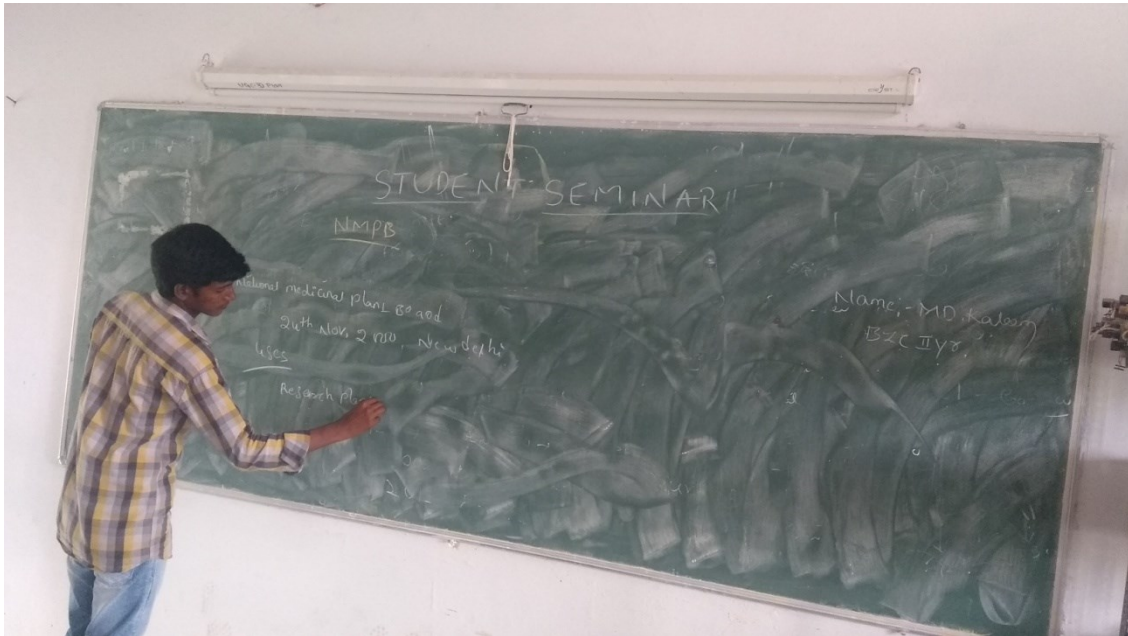 STUDENT SEMINAR
NMPB
National medicinal plant Board
24th Nov, 2000, New delhi
uses
Research pla
Name:- MD. Kaleem
BZC II yr.